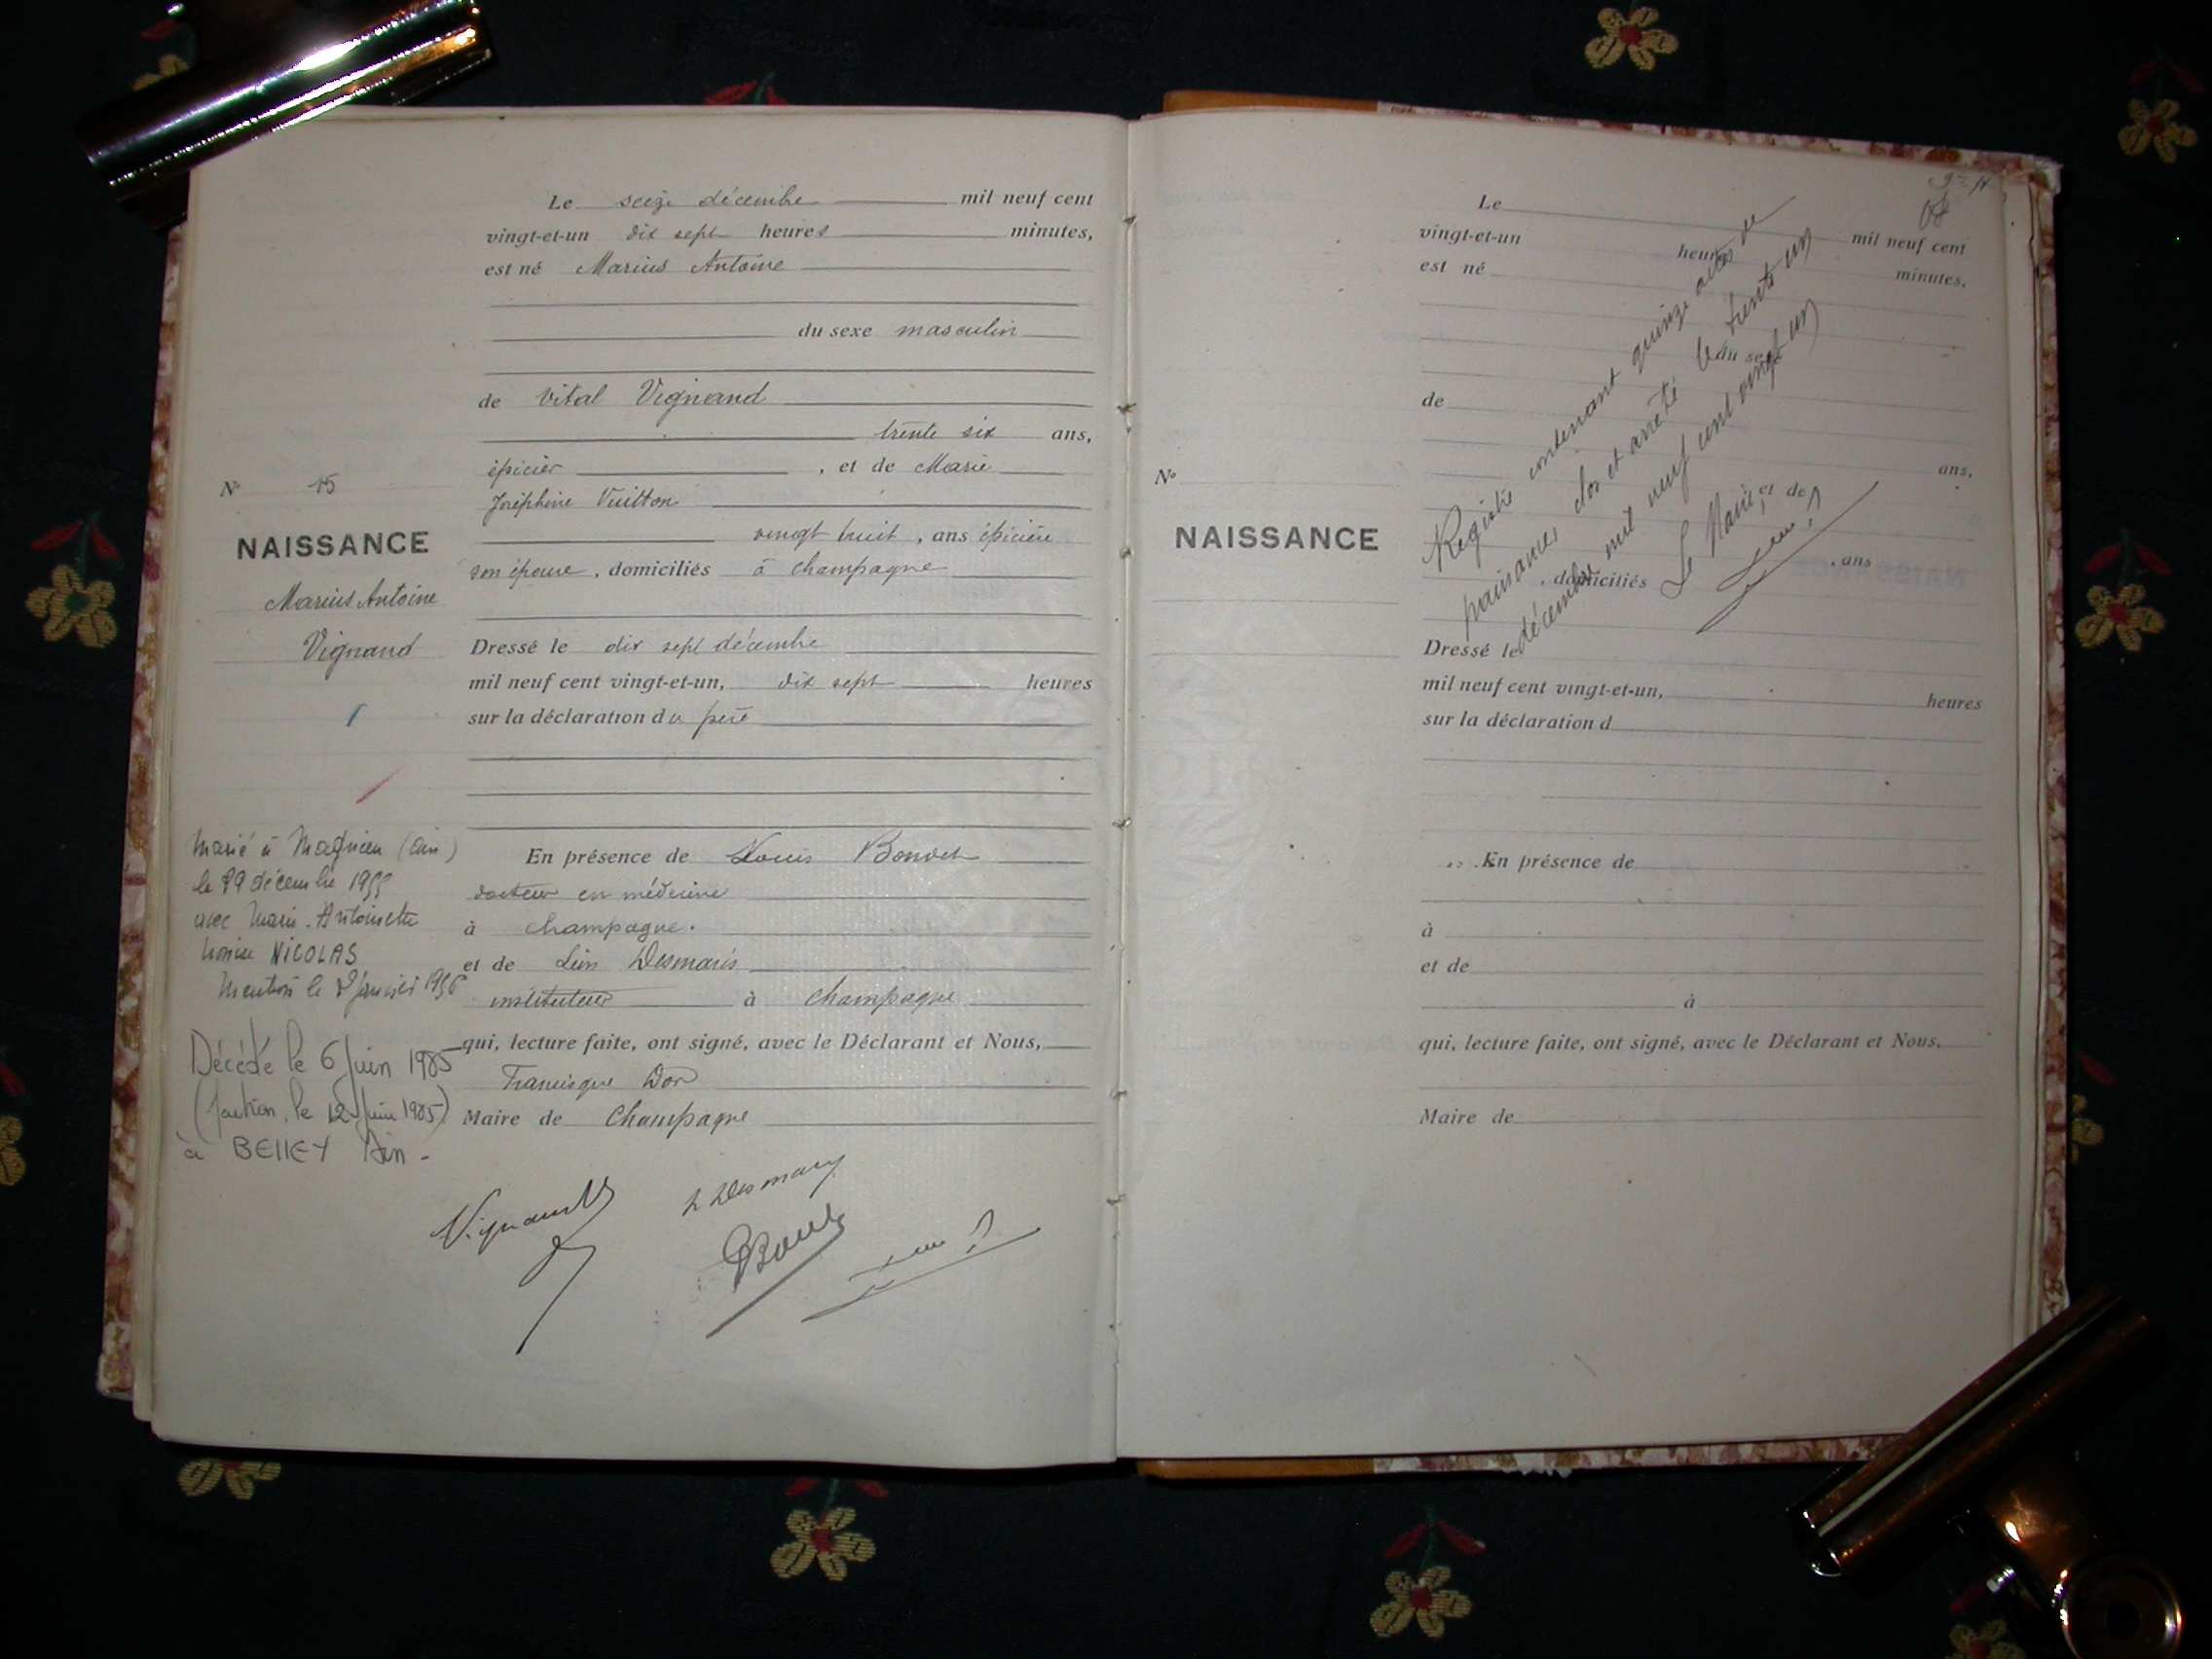 Le seize décembre mil neuf cent
vingt-et-un dix sept heures minutes,
est né Marius Antoine
du sexe masculin
de Vital Vignand
trente six ans,
épicier , et de Marie
Joséphine Vuitton
vingt huit , ans épicière
son épouse , domiciliés à Champagne
Dressé le dix sept décembre
mil neuf cent vingt-et-un, dix sept heures
sur la déclaration du père
En présence de Louis
docteur en médecine
à Champagne.
et de Léon Desmaris
instituteur à Champagne
qui, lecture faite, ont signé, avec le Déclarant et Nous,
Francisque Dor
Maire de Champagne
Nº 15
NAISSANCE
Marius Antoine
Vignand
Marié à (Ain)
le décembre 1955
avec Marie-Antoinette
NICOLAS
Mention le janvier 1956
Décédé le 6 Juin 1985
le 12 Juin 1985)
à BELLEY Ain -
Vignand
L Desmaris
Le mil neuf cent
vingt-et-un heures minutes.
est né
du sexe
de
ans,
et de
, ans
, domiciliés
Dressé le
mil neuf cent vingt-et-un, heures
sur la déclaration d
En présence de
à
et de
à
qui, lecture faite, ont signé, avec le Déclarant et Nous,
Maire de
Nº
NAISSANCE
Registre contenant quinze actes de
naissances clos et arrêté le trente un
décembre mil neuf cent vingt un
Le Maire,